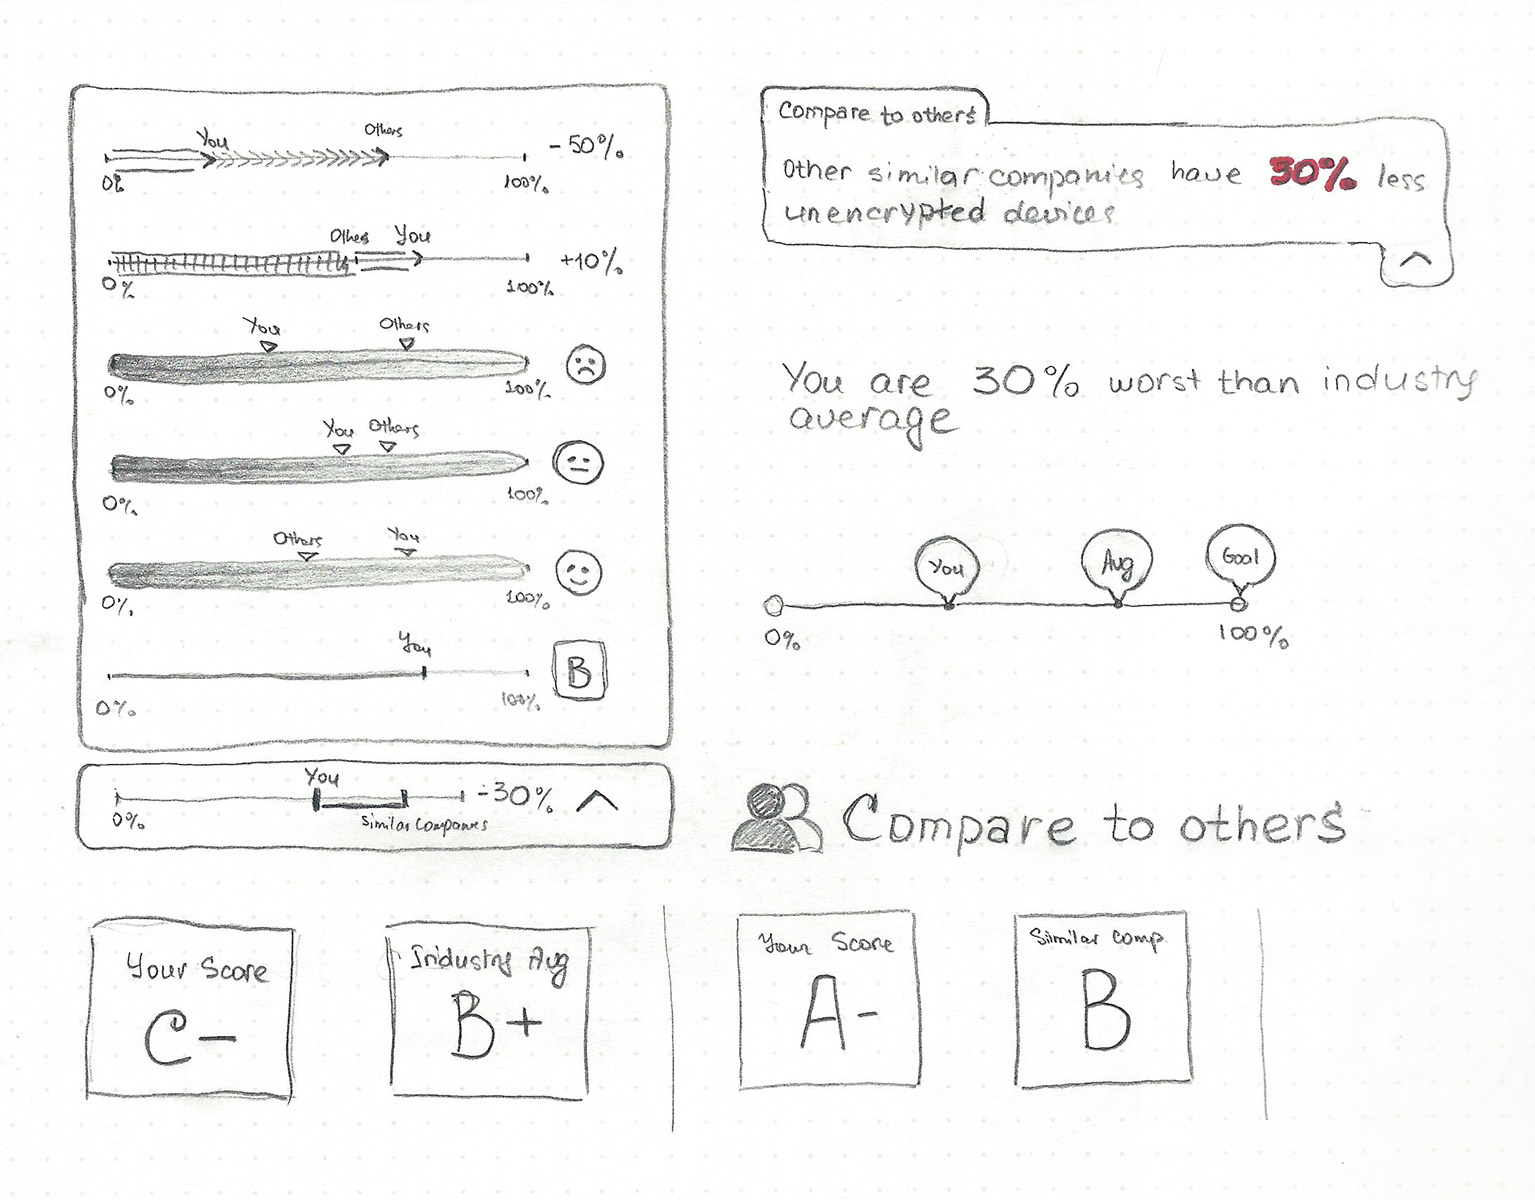 You Others
0% 100% -50%
Others You
0% 100% +10%
You Others
0% 100%
You Others
0% 100%
Others You
0% 100%
You
0% 100% B
You
0% -30%
Similar Companies
Compare to others
Other similar companies have 30% less
unencrypted devices
You are 30% worst than industry
average
You Avg Goal
0% 100%
Compare to others
Your Score
C-
Industry Avg
B+
Your Score
A-
Similar Comp.
B